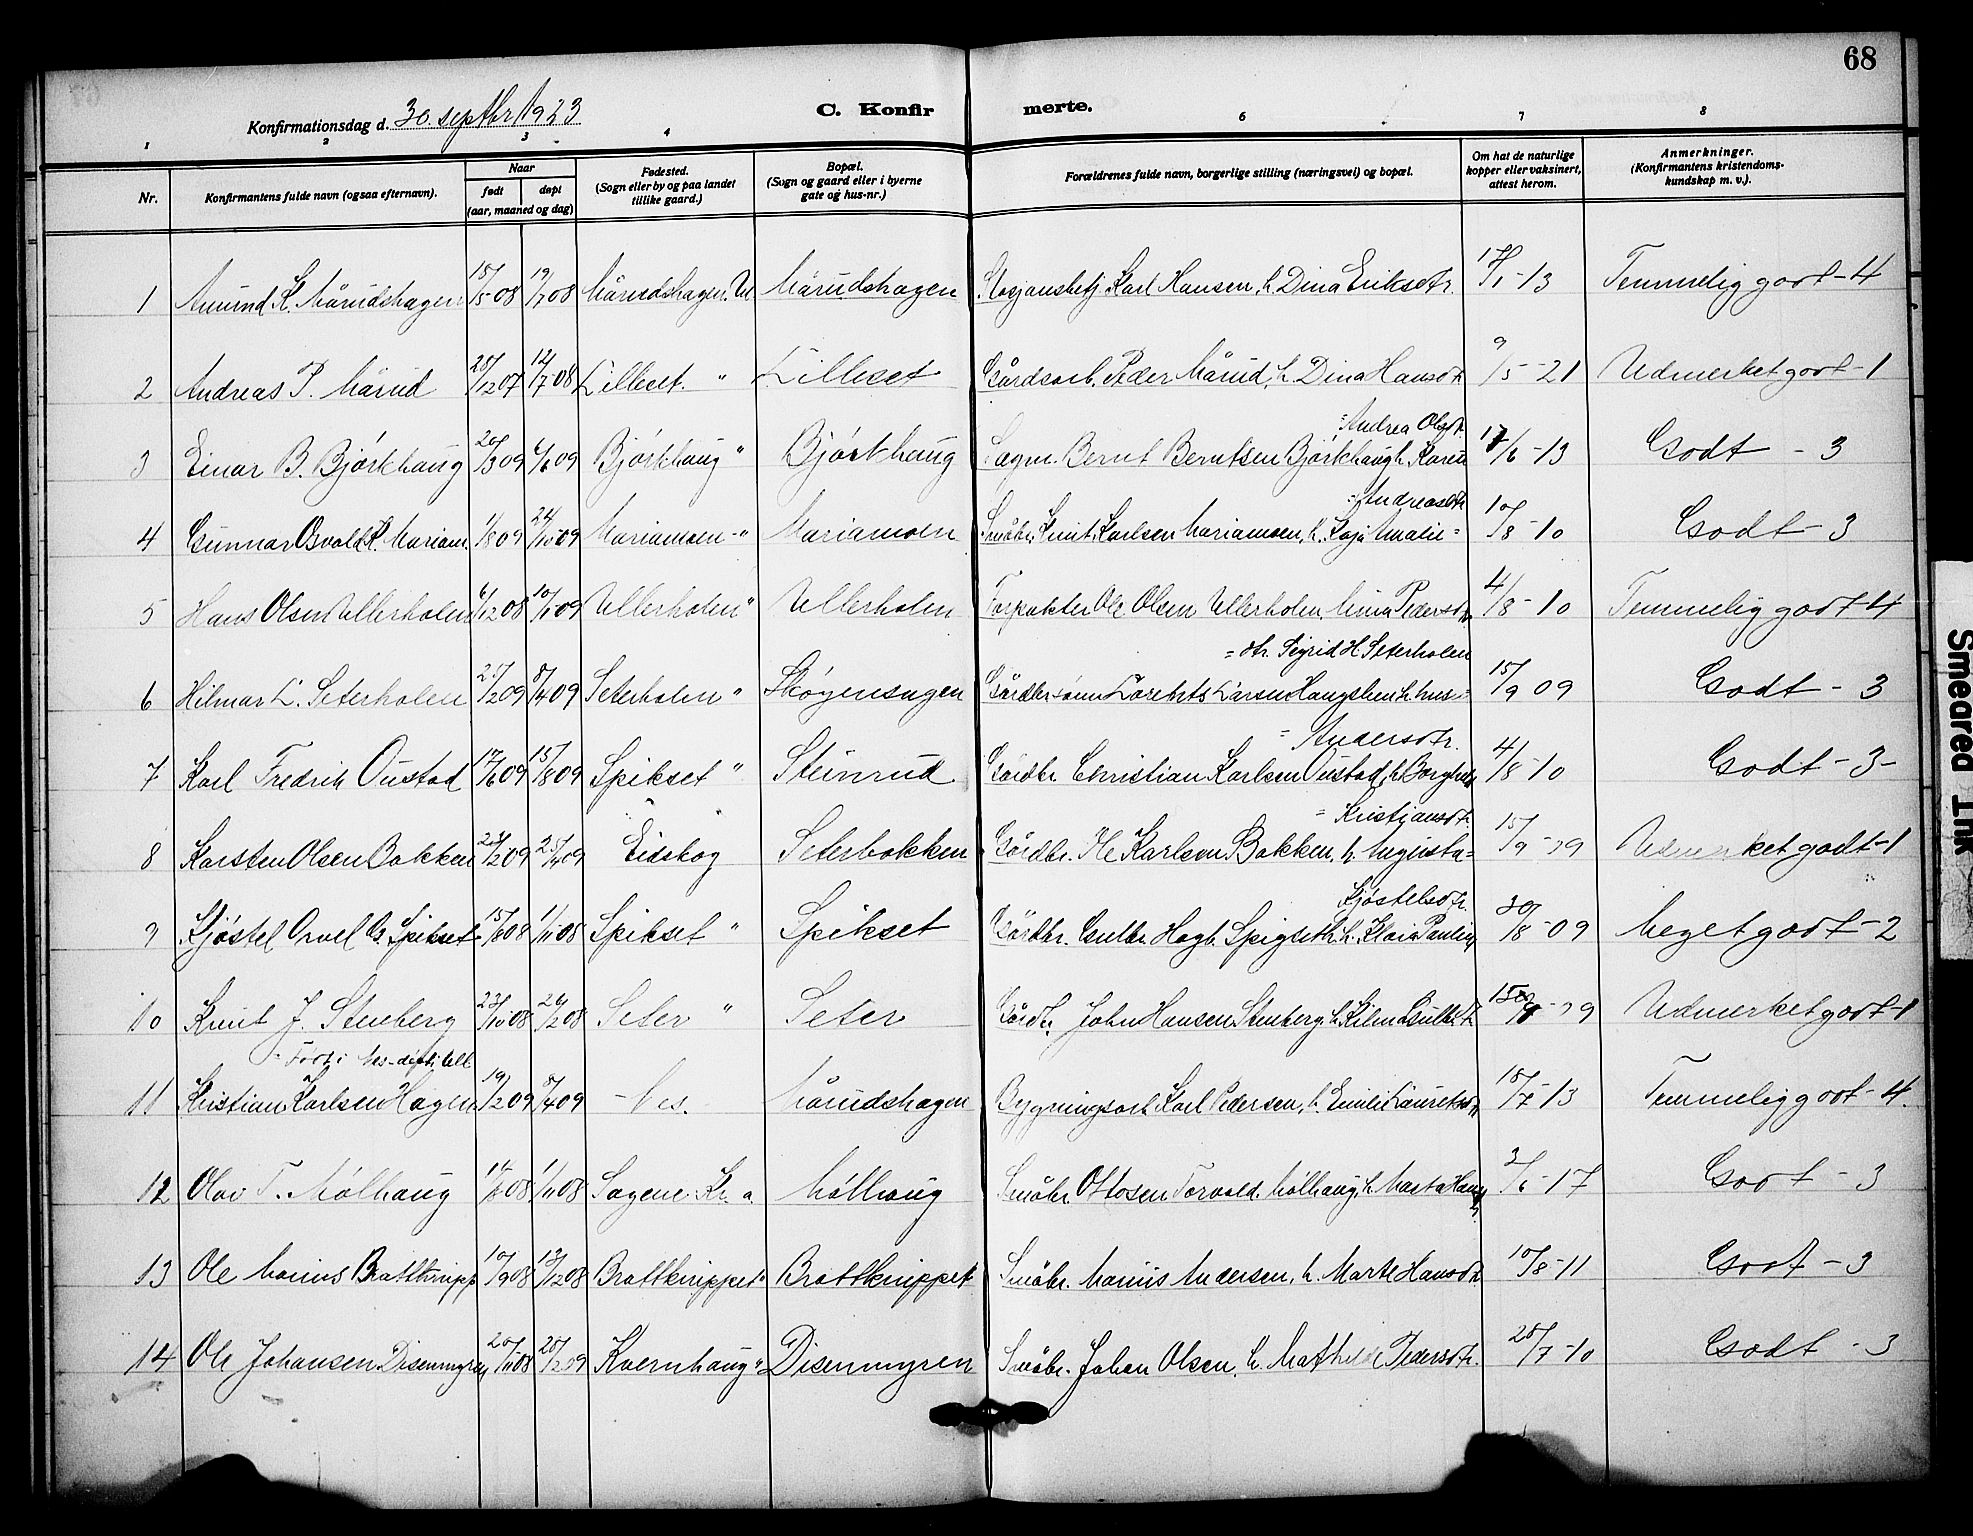 68
Konfirmationsdag d. 30. septbr 1923
C. Konfirmerte.
1 2 3 4 6 7 8
Nr.
Konfirmantens fulde navn (ogsaa efternavn).
Naar
født
døpt
(aar, maaned og dag)
Fødested.
(Sogn eller by og paa landet
tillike gaard.)
Bopæl.
(Sogn og gaard eller i byerne
gate og hus-nr.)
Forældrenes fulde navn, borgerlige stilling (næringsvei) og bopæl.
Om hat de naturlige
kopper eller vaksinert,
attest herom.
Anmerkninger.
(Konfirmantens kristendoms-
kundskap m. v.).
1 Amund K. Mårudshagen 15/5-08 19/7 08 Mårudshagen. Mårudshagen Karl Hansen, h. Dina Eriksdtr. 1-13 Temmelig godt - 4
2 Andreas P. Mårud 28/12 07 12/7-08 Lilleset. " Lilleset Gårdsarb. Peder Mårud, h. Dina Hansdtr 9/5-21 Udmerket godt - 1
= Andrea Olsdtr.
3 Einar B. Bjørkhaug 20/3 09 6/6 09 Bjørkhaug " Bjørkhaug Bernt Berntsen Bjørkhaug h. Karen 17/6-13 Godt - 3
= Andreasdtr
4 Gunnar Osvald K. Mariam. 1/8 09 24/10 09 Mariamoen " Mariamoen Småbr. Knut Karlsen Mariamoen, h. Kaja Amalie = 10/8-10 Godt - 3
5 Hans Olsen Ullerholen 6/12 08 10/1 09 Ullerholen " Ullerholen Forpakter Ole Olsen Ullerholen, Pedersdtr 4/8-10 Temmelig godt 4
= dtr. Sigrid H. Seterholen
6 Hilmar L. Seterholen 2/2 09 8/4 09 Seterholen " Skøyensagen Gårdbr.sønn Larsen h. hus = 15/9 09 Godt - 3
= Andersdtr.
7 Karl Fredrik Oustad 17/6 09 15/8 09 Spikset " Steinrud Gårdbr. Christian Karlsen Oustad, h. Borghild 4/8-10 Godt - 3 -
= Kristiansdtr.
8 Karsten Olsen Bakken 23/2 09 25/4 09 Eidskog Seterbakken Gårdbr. Karlsen Bakken, h. Augusta = 15/9-09 Udmerket godt - 1
Kjøstelsdtr.
9 Kjøstel Orvel G. Spikset 15/8 08 1/11 08 Spikset " Spikset Gårdbr. Gulbr. Hagb. Spigseth h. Klara Pauline 30/8-09 Meget godt - 2
10 Knut J. Stenberg 23/10 08 26/12 08 Seter " Seter Gårdbr. John Hansen Stenberg, h. 09 Udmerket godt - 1
= Født i Nes - døpt i Ull
11 Kristian Karlsen Hagen 19/2 09 8/4 09 Nes. Mårudshagen Bygningsarb. Karl Pedersen, h. Emilie Lauritsdtr 18/7-13 Temmelig godt - 4.
12 Olav T. Mølhaug 08 1/11 08 Sagene Kr.a. Mølhaug Småbr. Ottosen Torvald. Mølhaug, h. Marta Hansdtr 3/6-17 Godt - 3
13 Ole Marius Brattknipp 10/9 08 13/12 08 Brattknippet " Brattknippet Småbr. Marius Andersen, h. Marte Hansdtr 10/8-11 Godt - 3
14 Ole Johansen Disenmyren 20/11 08 28/2 09 Kvernhaug " Disenmyren Småbr. Johan Olsen, h. Mathilde Pedersdtr. 28/7-10 Godt - 3
Smeared Ink